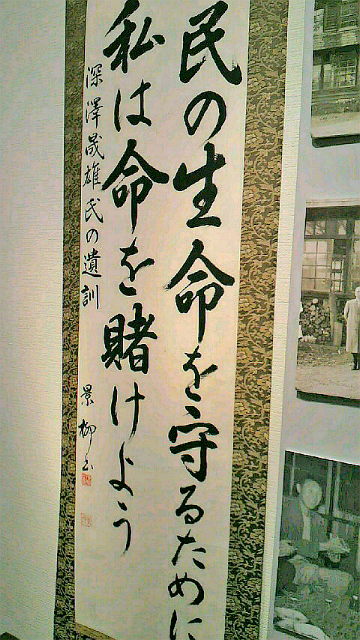 民の生命を守るために
私は命を賭けよう
深澤晟雄氏の遺訓
景柳書